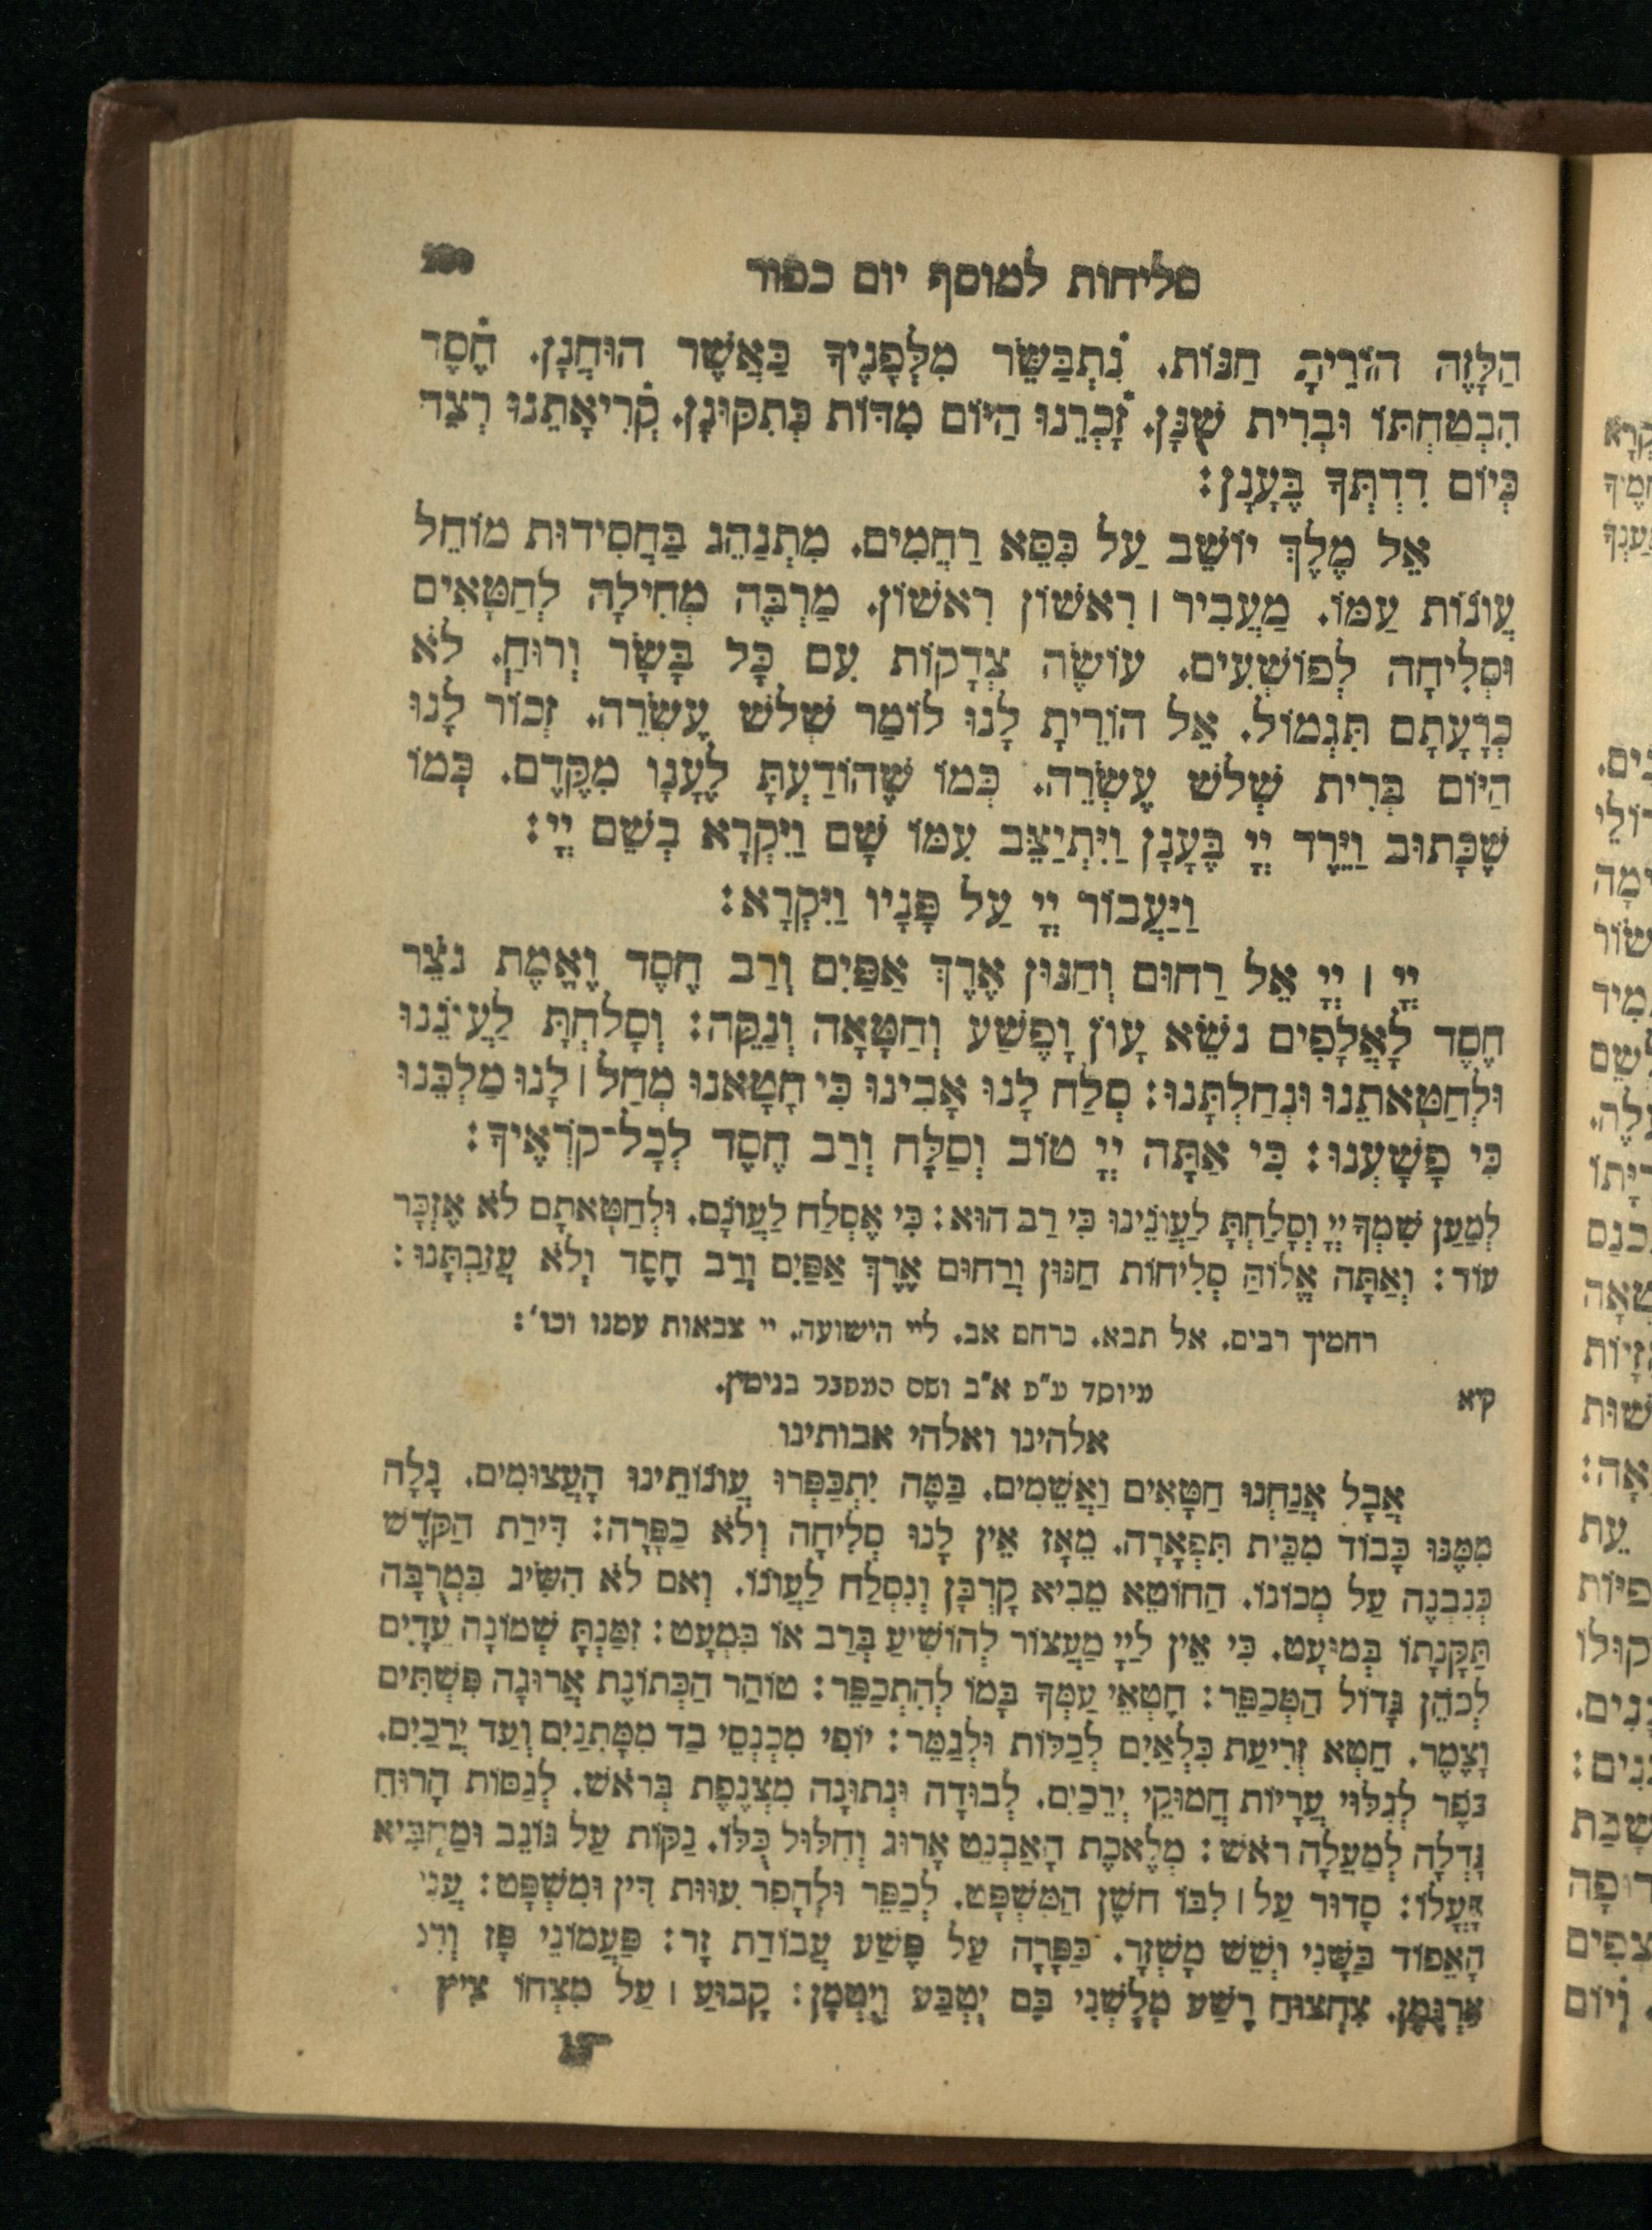 סליחות למוסף יום כפור
הַלָּזֶה הוֹרֵיתָ חַנּוֹת. נִתְבַּשֵּׂר מִלְּפָנֶיךָ כַּאֲשֶׁר הוּחֲנָן. חֶסֶד
הִבְטַחְתּוֹ וּבְרִית שֻׁנָּן. זָכְרֵנוּ הַיּוֹם מִדּוֹת כְּתִקּוּנָן. קְרִיאָתֵנוּ רְצֵה
כְּיוֹם דִּדְתְּךָ בֶּעָנָן:
אֵל מֶלֶךְ יוֹשֵׁב עַל כִּסֵּא רַחֲמִים. מִתְנַהֵג בַּחֲסִידוּת מוֹחֵל
עֲוֹנוֹת עַמּוֹ. מַעֲבִיר ׀ רִאשׁוֹן רִאשׁוֹן. מַרְבֶּה מְחִילָה לְחַטָּאִים
וּסְלִיחָה לְפוֹשְׁעִים. עוֹשֶׂה צְדָקוֹת עִם כָּל בָּשָׂר וְרוּחַ. לֹא
כְרָעָתָם תִּגְמוֹל. אֵל הוֹרֵיתָ לָנוּ לוֹמַר שְׁלֹשׁ עֶשְׂרֵה. זְכוֹר לָנוּ
הַיּוֹם בְּרִית שְׁלֹשׁ עֶשְׂרֵה. כְּמוֹ שֶׁהוֹדַעְתָּ לֶעָנָו מִקֶּדֶם. כְּמוֹ
שֶׁכָּתוּב וַיֵּרֶד יְיָ בֶּעָנָן וַיִּתְיַצֵּב עִמּוֹ שָׁם וַיִּקְרָא בְשֵׁם יְיָ:
וַיַּעֲבוֹר יְיָ עַל פָּנָיו וַיִּקְרָא:
יְיָ ׀ יְיָ אֵל רַחוּם וְחַנּוּן אֶרֶךְ אַפַּיִם וְרַב חֶסֶד וֶאֱמֶת נֹצֵר
חֶסֶד לָאֲלָפִים נֹשֵׂא עָוֹן וָפֶשַׁע וְחַטָּאָה וְנַקֵּה: וְסָלַחְתָּ לַעֲוֹנֵנוּ
וּלְחַטָּאתֵנוּ וּנְחַלְתָּנוּ: סְלַח לָנוּ אָבִינוּ כִּי חָטָאנוּ מְחַל ׀ לָנוּ מַלְכֵּנוּ
כִּי פָשָׁעְנוּ: כִּי אַתָּה יְיָ טוֹב וְסַלָּח וְרַב חֶסֶד לְכָל־קוֹרְאֶיךָ:
לְמַעַן שִׁמְךָ יְיָ וְסָלַחְתָּ לַעֲוֹנֵינוּ כִּי רַב הוּא: כִּי אֶסְלַח לַעֲוֹנָם. וּלְחַטָּאתָם לֹא אֶזְכָּר
עוֹד: וְאַתָּה אֱלוֹהַּ סְלִיחוֹת חַנּוּן וְרַחוּם אֶרֶךְ אַפַּיִם וְרַב חֶסֶד וְלֹא עֲזַבְתָּנוּ:
רחמיך רבים. אל תבא. כרחם אב. ליי הישועה. יי צבאות עמנו וכו':
קיא מיוסד ע"פ א"ב ושם המחבר בנימין.
אלהינו ואלהי אבותינו
אֲבָל אֲנַחְנוּ חַטָּאִים וַאֲשֵׁמִים. בַּמֶּה יִתְכַּפְּרוּ עֲוֹנוֹתֵינוּ הָעֲצוּמִים. גָּלָה
מִמֶּנּוּ כָּבוֹד מִבֵּית תִּפְאָרָה. מֵאָז אֵין לָנוּ סְלִיחָה וְלֹא כַפָּרָה: דִּירַת הַקֹּדֶשׁ
כְּנִבְנָה עַל מְכוֹנוֹ. הַחוֹטֵא מֵבִיא קָרְבָּן וְנִסְלַח לַעֲוֹנוֹ. וְאִם לֹא הִשִּׂיג בִּמְרֻבָּה
תַּקָּנָתוֹ בְּמוּעָט. כִּי אֵין לַיְיָ מַעֲצוֹר לְהוֹשִׁיעַ בְּרַב אוֹ בִּמְעָט: זִמַּנְתָּ שְׁמוֹנָה עֵדָיִם
לְכֹהֵן גָּדוֹל הַמְּכַפֵּר: חֲטָאֵי עַמְּךָ בָּמוֹ לְהִתְכַּפֵּר: טוֹהַר הַכְּתוֹנֶת אֲרוּגָה פִּשְׁתִּים
וָצֶמֶר. חֵטְא זְרִיעַת כִּלְאַיִם לְכַלּוֹת וּלְגַמֵּר: יוֹפִי מִכְנְסֵי בַד מִמָּתְנַיִם וְעַד יְרֵכַיִם.
כֹּפֶר לְגִלּוּי עֲרָיוֹת חֲמוּקֵי יְרֵכַיִם. לְבוּדָה וּנְתוּנָה מִצְנֶפֶת בְּרֹאשׁ. לְנַסּוֹת הָרוּחַ
גָּדְלָה לְמַעְלָה רֹאשׁ: מְלֶאכֶת הָאַבְנֵט אָרוּג וְחִלּוּל כֻּלּוֹ. נַקּוֹת עַל גּוֹנֵב וּמַחְבִּיא
פָּעֳלוֹ: סָדוּר עַל ׀ לִבּוֹ חֹשֶׁן הַמִּשְׁפָּט. לְכַפֵּר וּלְהָפֵר עִוּוּת דִּין וּמִשְׁפָּט: עֲנִי
הָאֵפוֹד בַּשָּׁנִי וְשֵׁשׁ מָשְׁזָר. כַּפָּרָה עַל פֶּשַׁע עֲבוֹדַת זָר: פַּעֲמוֹנֵי פָּז
אַרְגָּמָן. צִחְצוּחַ רֶשַׁע מְלָשְׁנִי בָּם יִטְבַּע וְיִטָּמָן: קָבוּעַ ׀ עַל מִצְחוֹ צִיץ